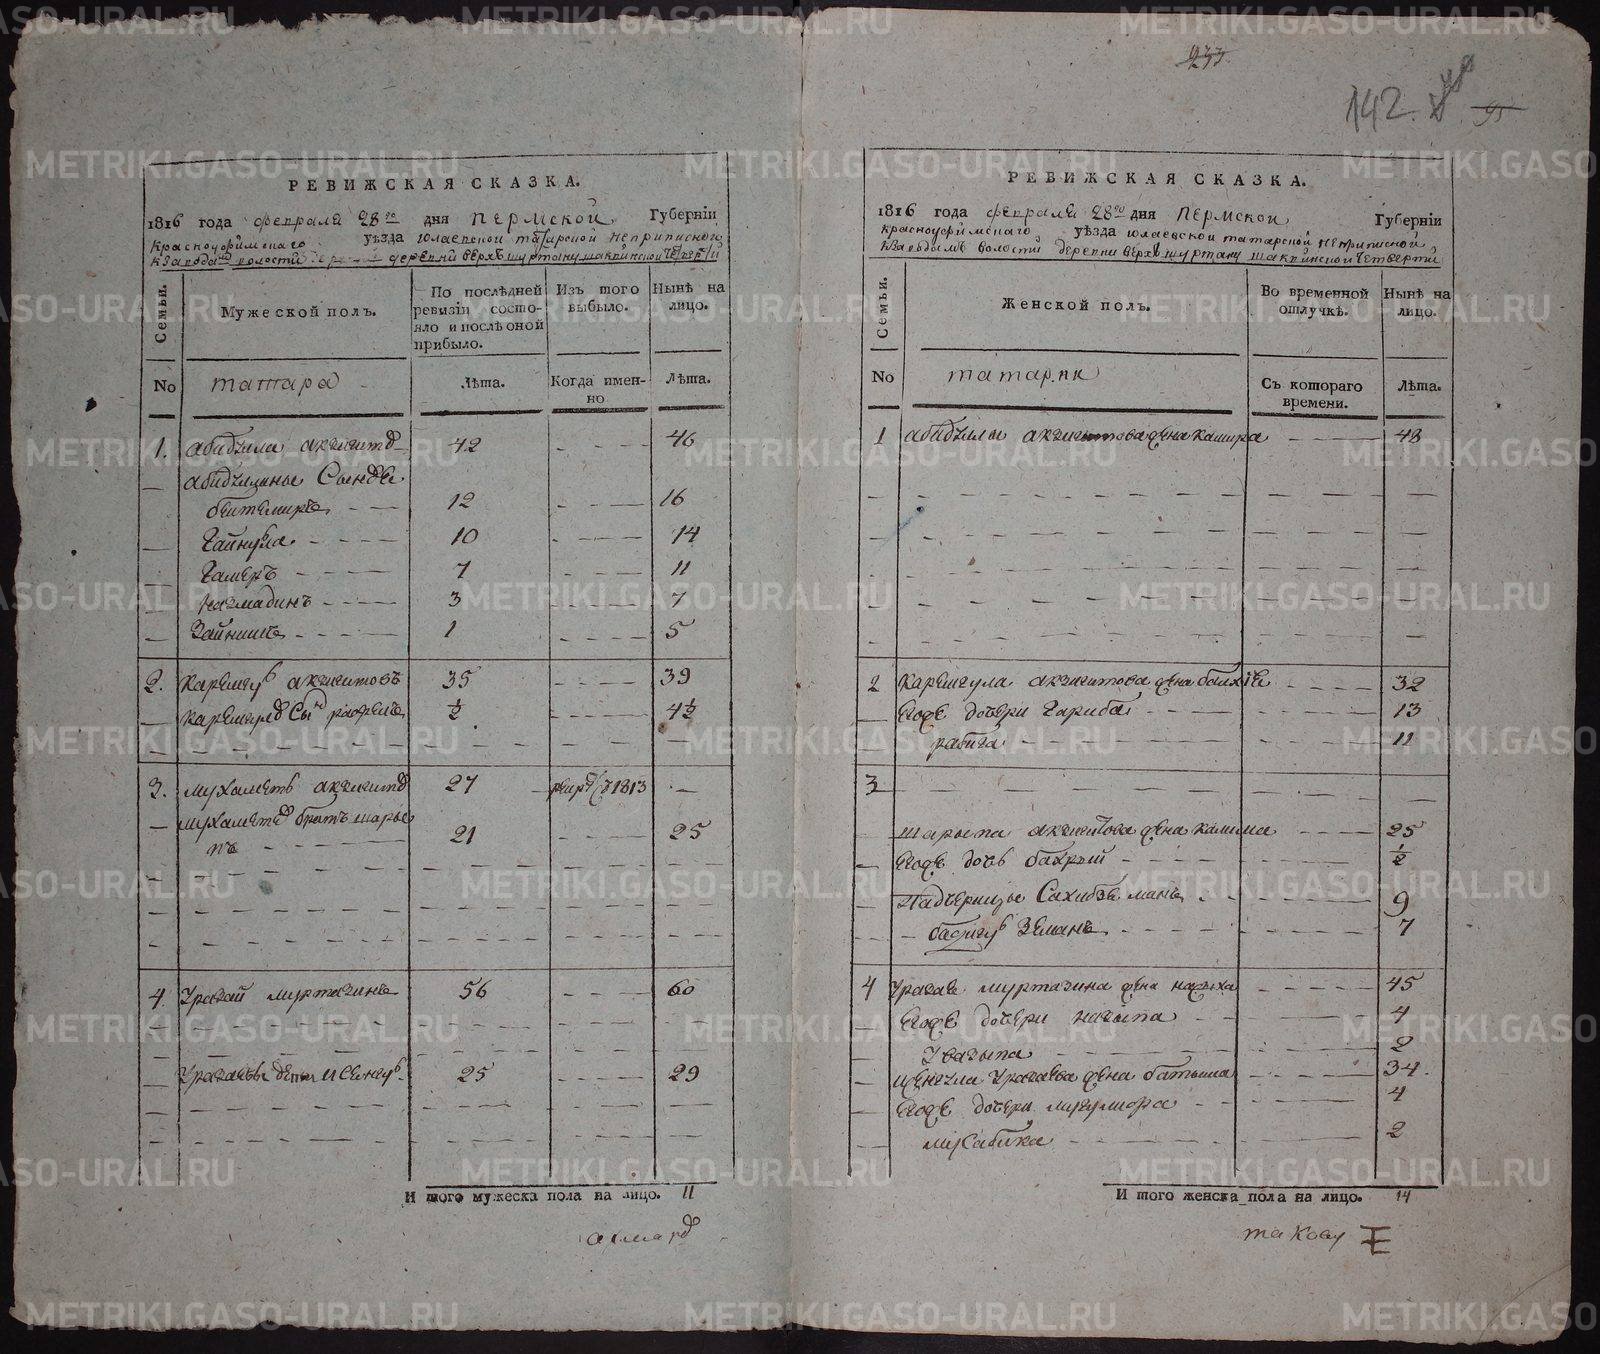 233
142.
95
РЕВИЖСКАЯ СКАЗКА.
1816 года февраля 28го дня Пермской Губерніи
красноуфимскаго уѣзда юлаевской татарской неприписной
к заводамъ волости деревни верхъ шуртану шакшинской четверти
Семьи.
Мужеской полъ.
По послѣдней ревизіи состояло и послѣ оной прибыло.
Изъ того выбыло.
Нынѣ на лицо.
No татара Лѣта. Когда именно Лѣта.
1. абдзила акчигитов 42 46
абдзилины Сыновья
битемиръ 12 16
Гайнула 10 14
Гамеръ 7 11
нагмадинъ 3 7
Зайнишъ 1 5
2. Каремгулъ акчигитовъ 35 39
Каремгулов Сын рафекъ ½ 4½
3. мухаметъ акчигитов 27 1813
мухаметов братъ шары
пъ 21 25
4. Урагай муртазинъ 56 60
Урагаевы дети Исенгул 25 29
И того мужеска пола на лицо. 11
ахмаров
РЕВИЖСКАЯ СКАЗКА.
1816 года февраля 28го дня Пермской Губерніи
красноуфимскаго уѣзда юлаевской татарской неприписной
к заводамъ волости деревни верхъ шуртану шакшинской четверти
Семьи.
Женской полъ.
Во временной отлучкѣ.
Нынѣ на лицо.
No татарки Съ котораго времени. Лѣта.
1 акчигитова жена кашира 48
2 Каремгула акчигитова жена 32
Егоже дочери Гариба 13
рабига 11
3
шарыпа акчигитова жена калима 25
Егоже дочь бахрый ½
Падчерицы Сахибземанъ 9
Земанъ 7
4 Урагая муртазина жена 45
Егоже дочери нагыпа 4
Увагыпа 2
Урагаева жена батыма 34
Егоже дочери 4
мукабика 2
И того женска пола на лицо. 14
такову
METRIKI.GASO-URAL.RU